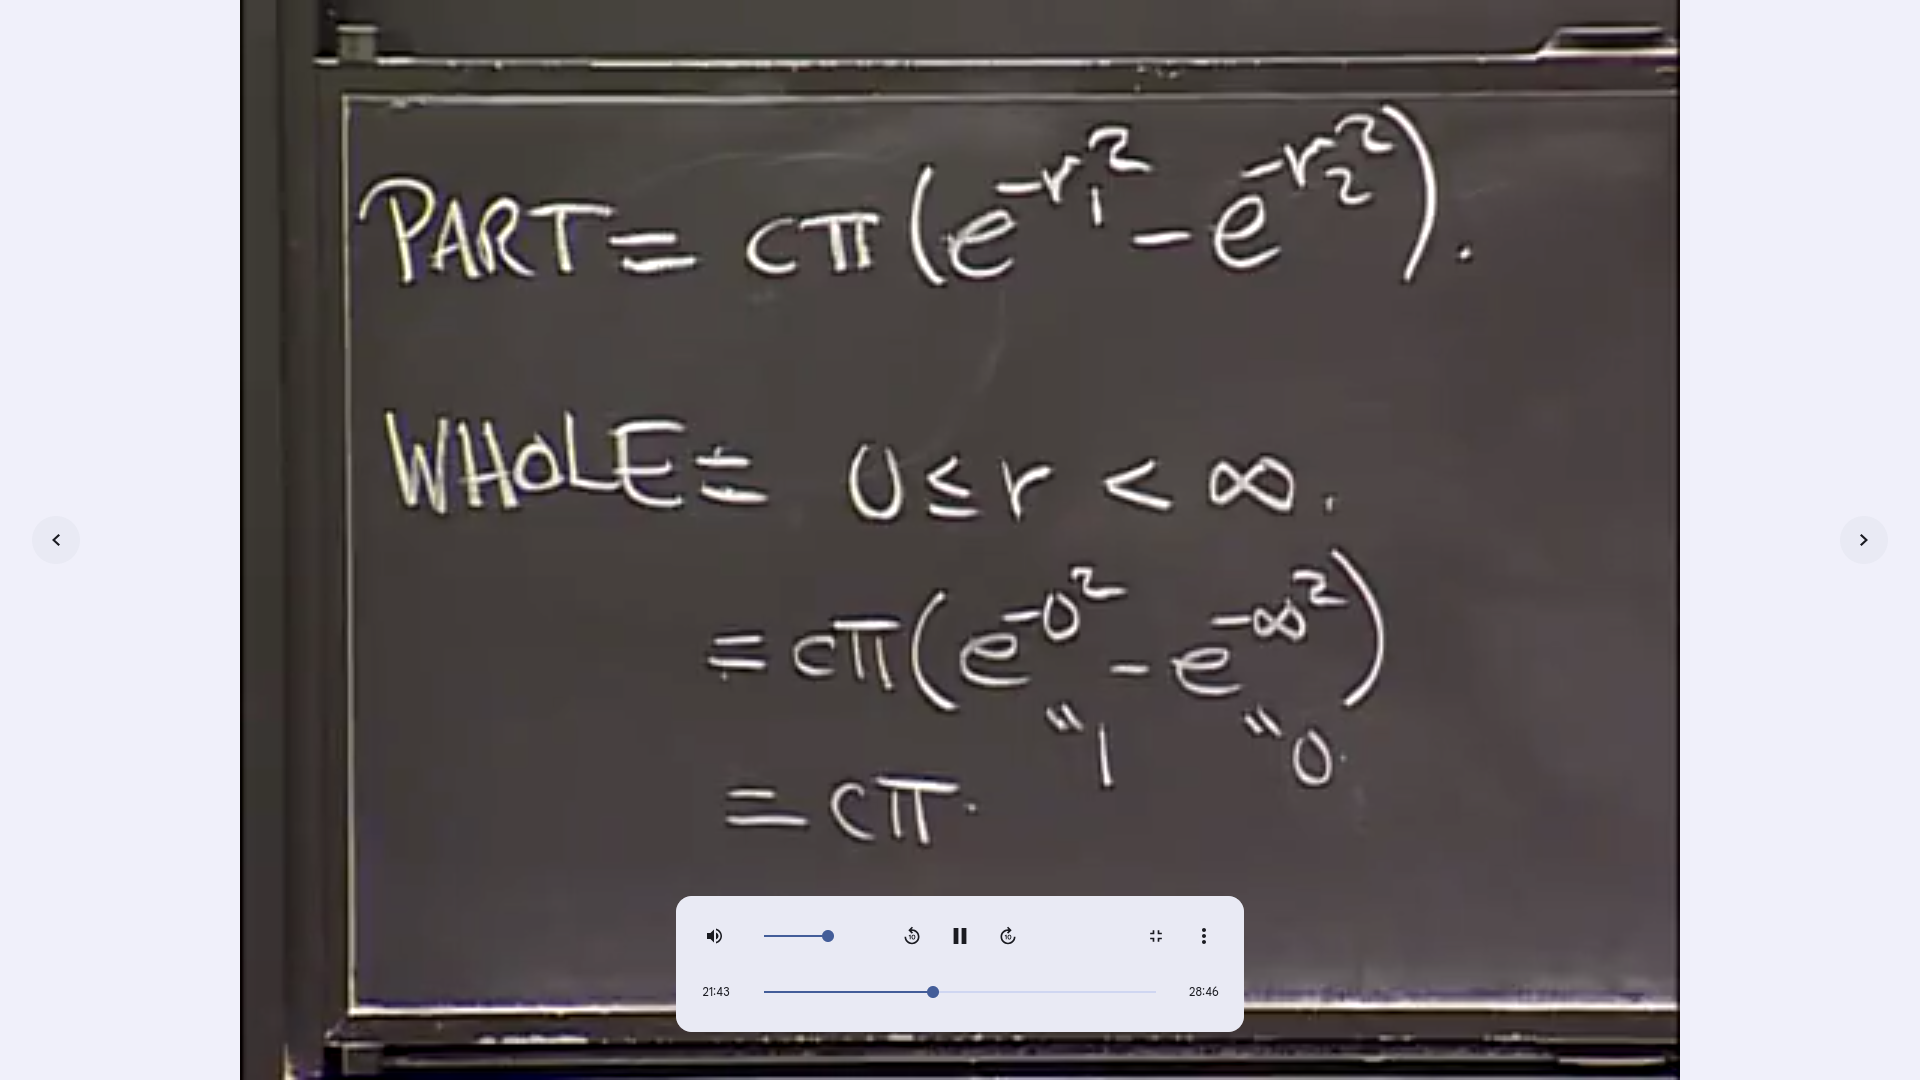 PART = cπ(e^{-r_1^2} - e^{-r_2^2}).
WHOLE = 0 ≤ r < ∞.
= cπ(e^{-0^2} - e^{-∞^2})
"1 "0
= cπ.
10 10
21:43 28:46